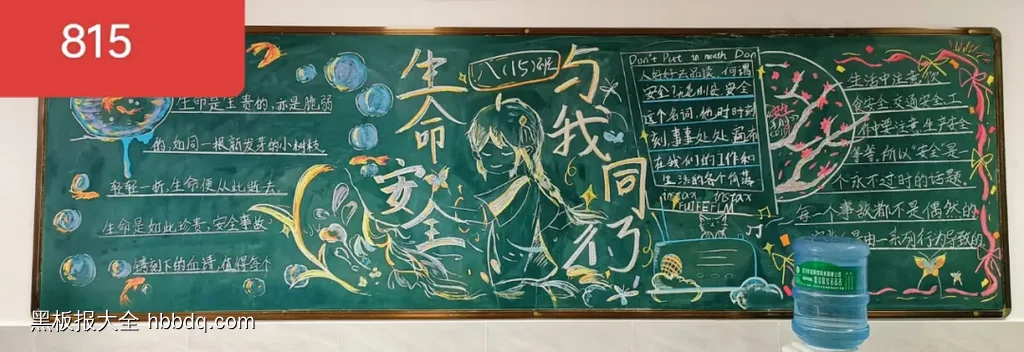 815
生命是宝贵的,亦是脆弱
的,如同一根新发芽的小树枝
轻轻一折,生命便从此逝去
生命是如此珍贵,安全事故
镌刻下的血诗,值得每个
生命安全
八(15)班
与我同行
Don't Put to math Don
人好好去品读 何谓
安全?无危则安 安全
这个名词,他时时刻
刻,事事处处 面布
在我们的工作和
生活的各个角落
生活中注意饮
食安全,交通安全,工
作时要注意,生产安全
等等,所以,安全是一
个永不过时的话题.
每一个事故都不是偶然的
是由一系列行为导致的
黑板报大全 hbbdq.com